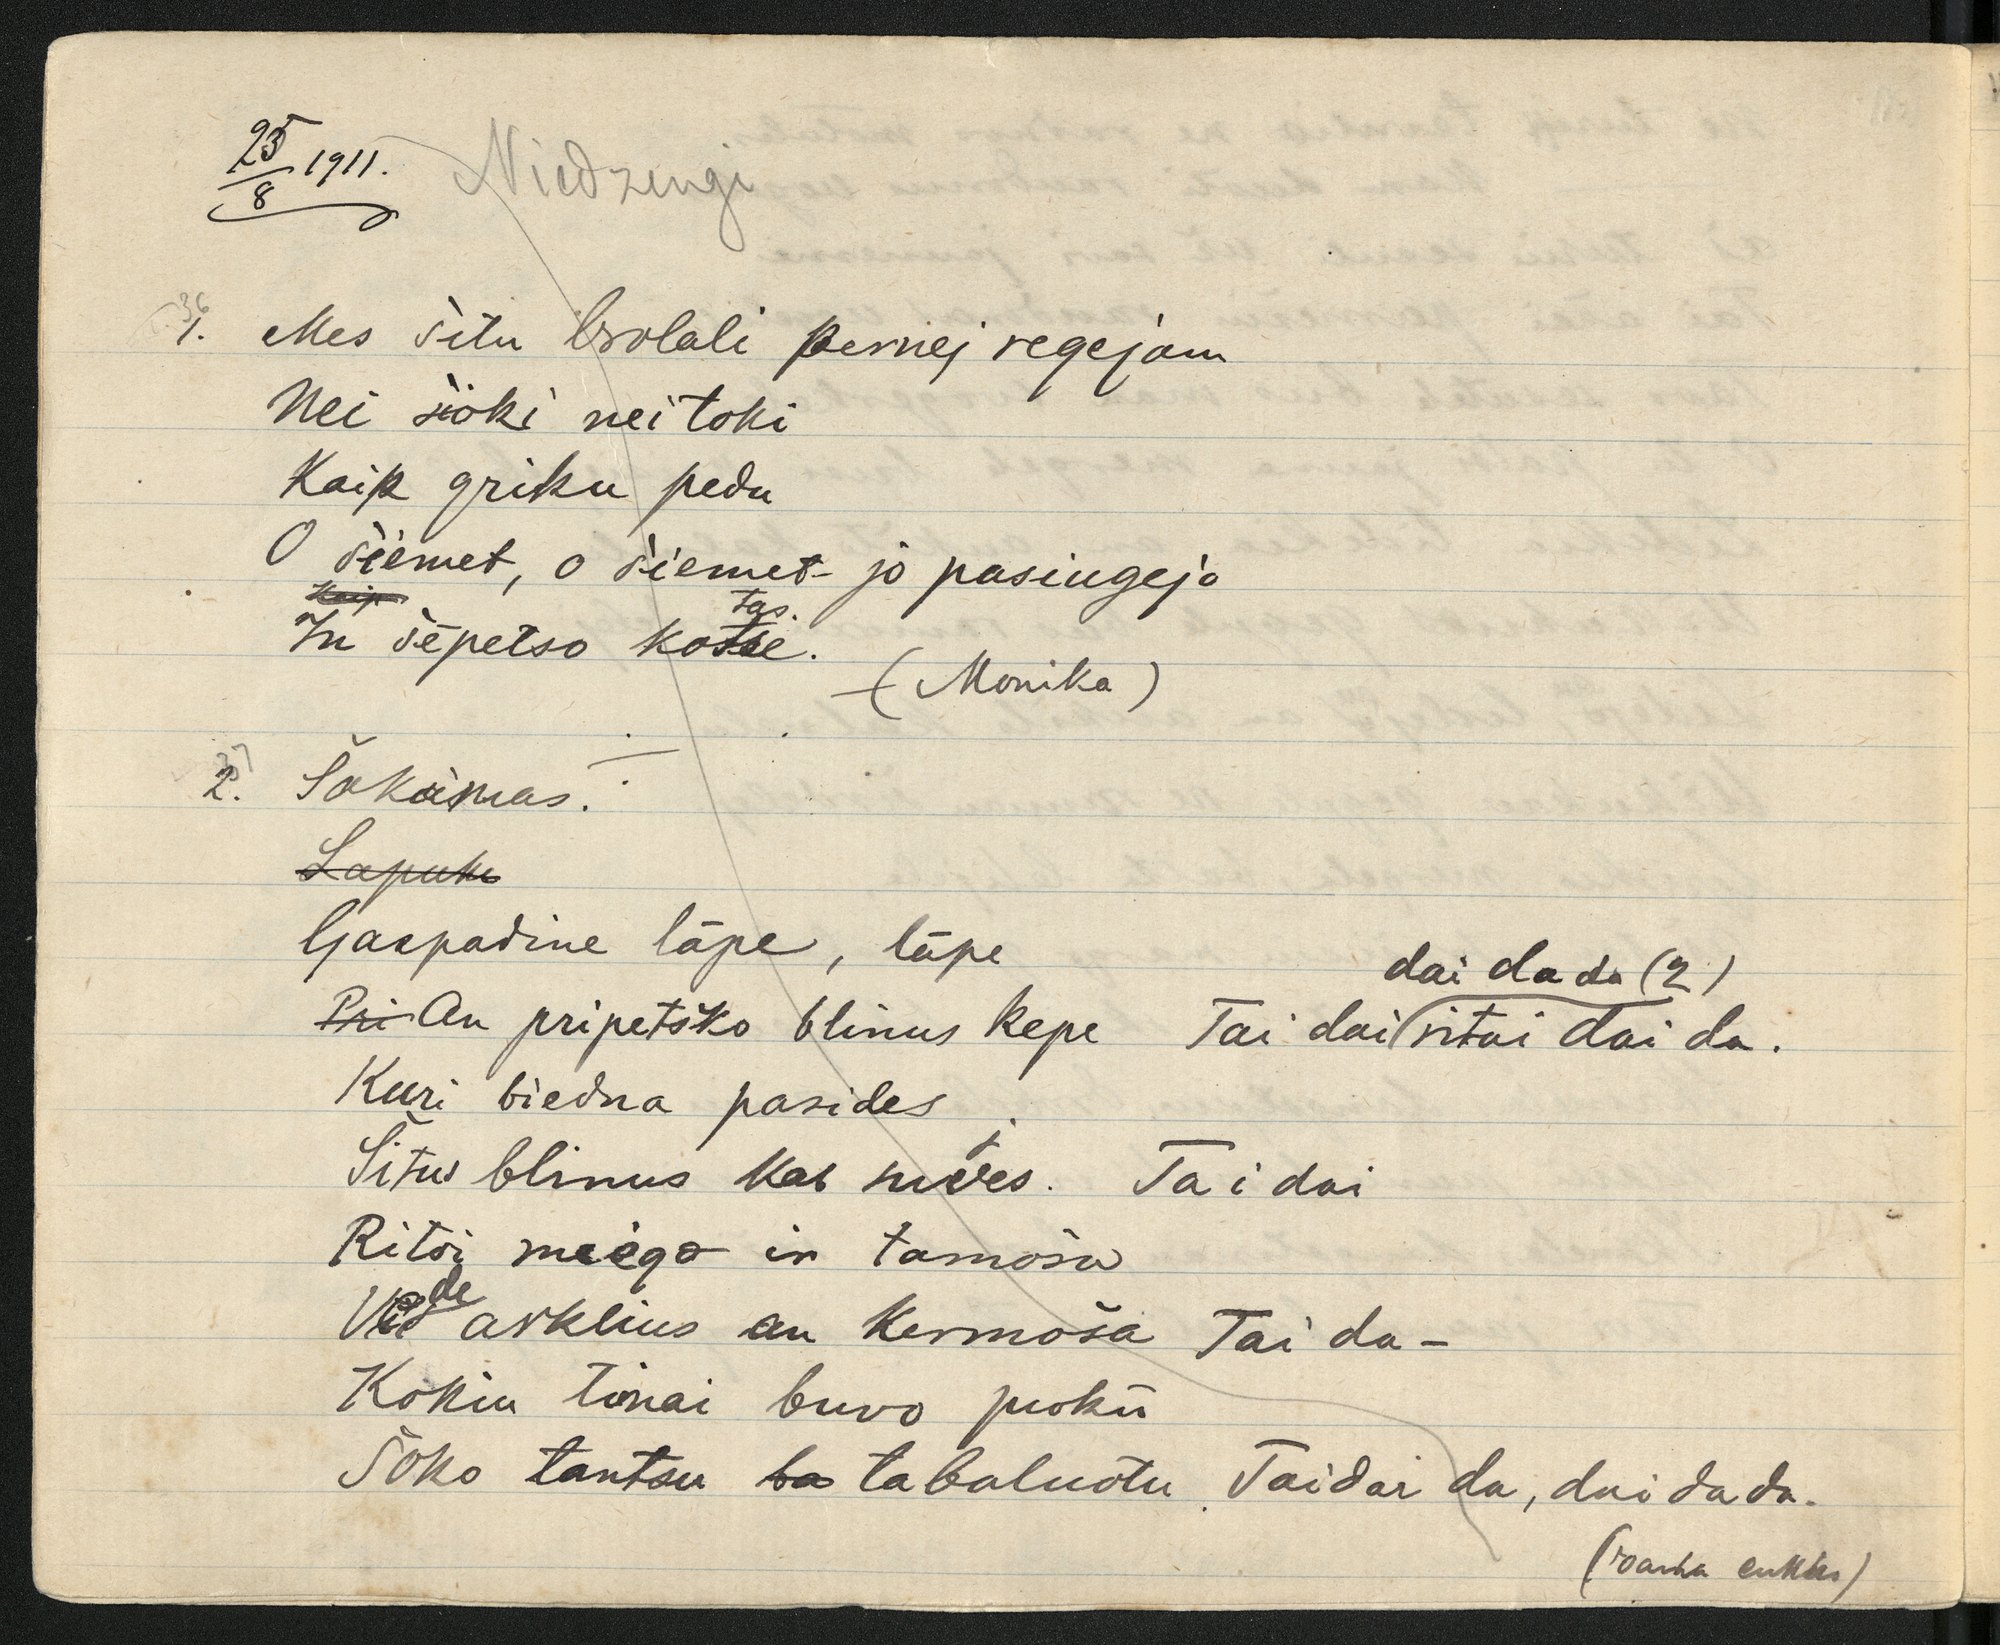 25/8 1911. Niedzengi
36
1. Mes šitu brolali pernej regejom
Nei šioki nei toki
Kaip griku pedu
O šiemet, o šiemet jo pasiugejo
Kaip tas.
In šēpetso kotse.
(Monika)
37
2. Šokamas.
Lapuke
Gaspadine lāpe, lāpe
dai da da (2)
Pri An pripetško blinus kepe Tai dai ritai dai da.
Kuri biedna pasides
Šitus blinus kas suves. Tai dai
j
Ritoi meego in tamōšu
de
Ved arklius an kermōša Tai da -
Kokiu tinai buvo pjokū
Šoko tantsu ba tabaluōtu Taidai da, dai da da.
(vanha eukko)